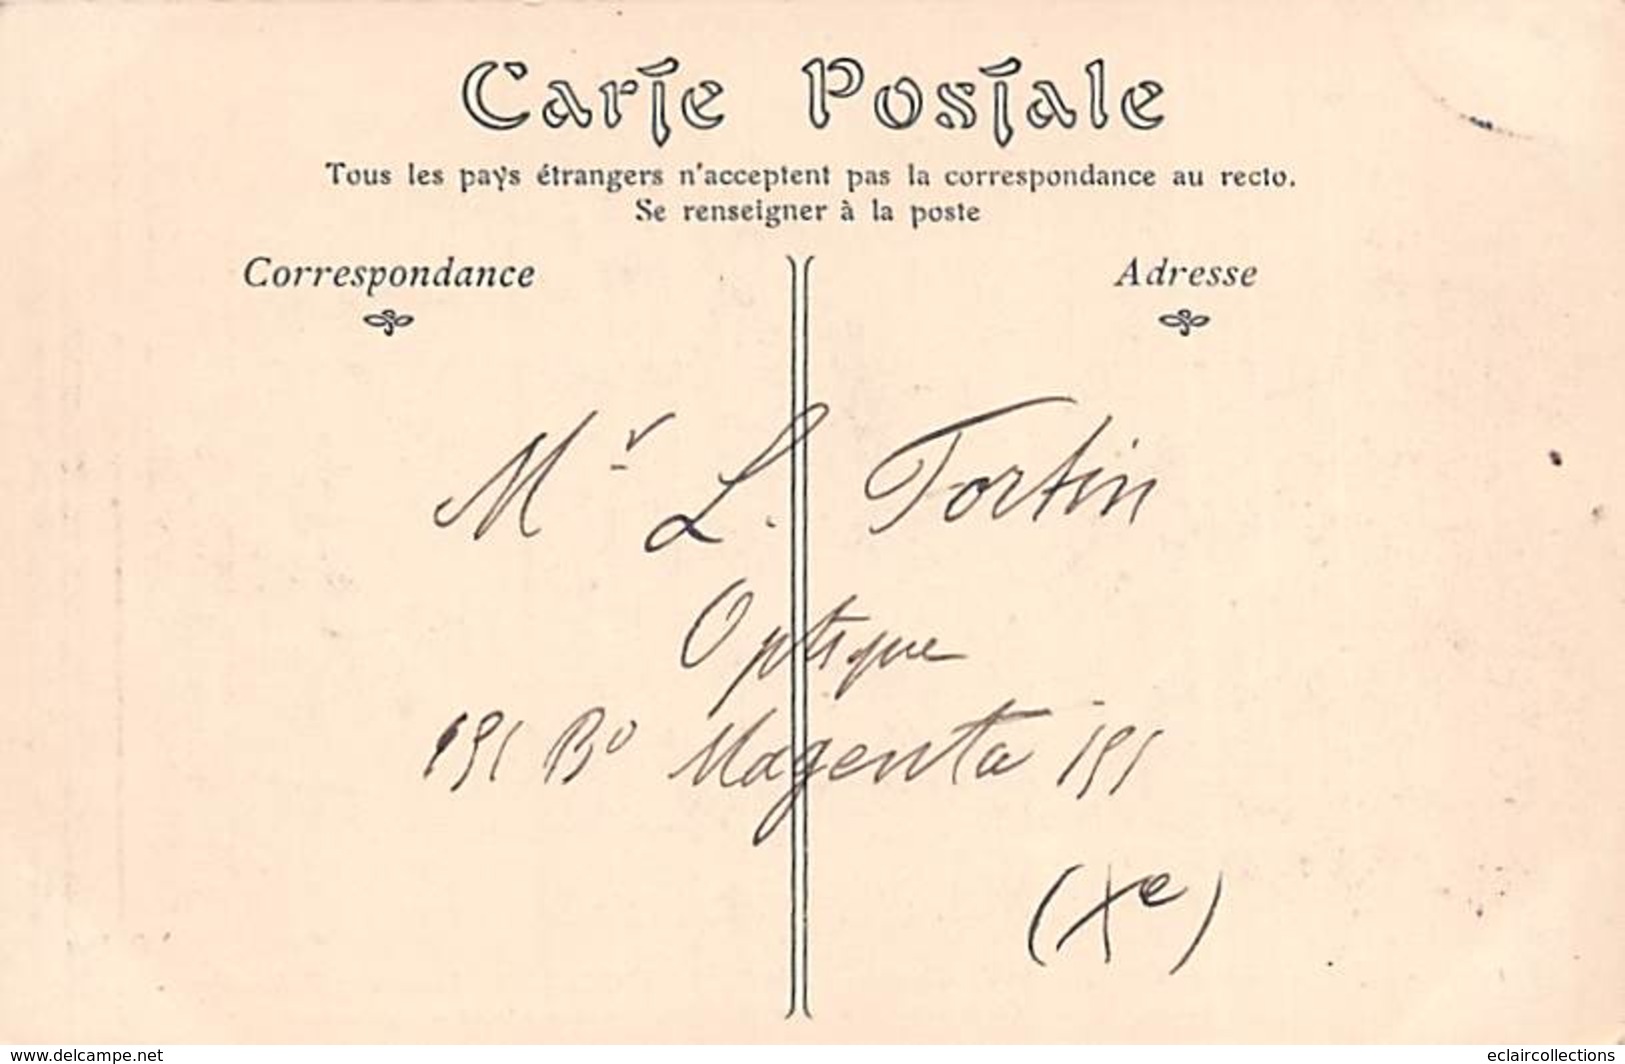 Carte Postale
Tous les pays étrangers n'acceptent pas la correspondance au recto.
Se renseigner à la poste
Correspondance
Adresse
Mr L. Fortin
Optique
151 Bd Magenta 151
(Xe)
www.delcampe.net
eclaircollections